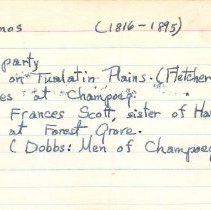 mos (1816-1895)
party
on Tualatin Plains. (Fletcher
es at Champoeg.
Frances Scott, sister of Ha
at Forest Grove.
(Dobbs: Men of Champoeg